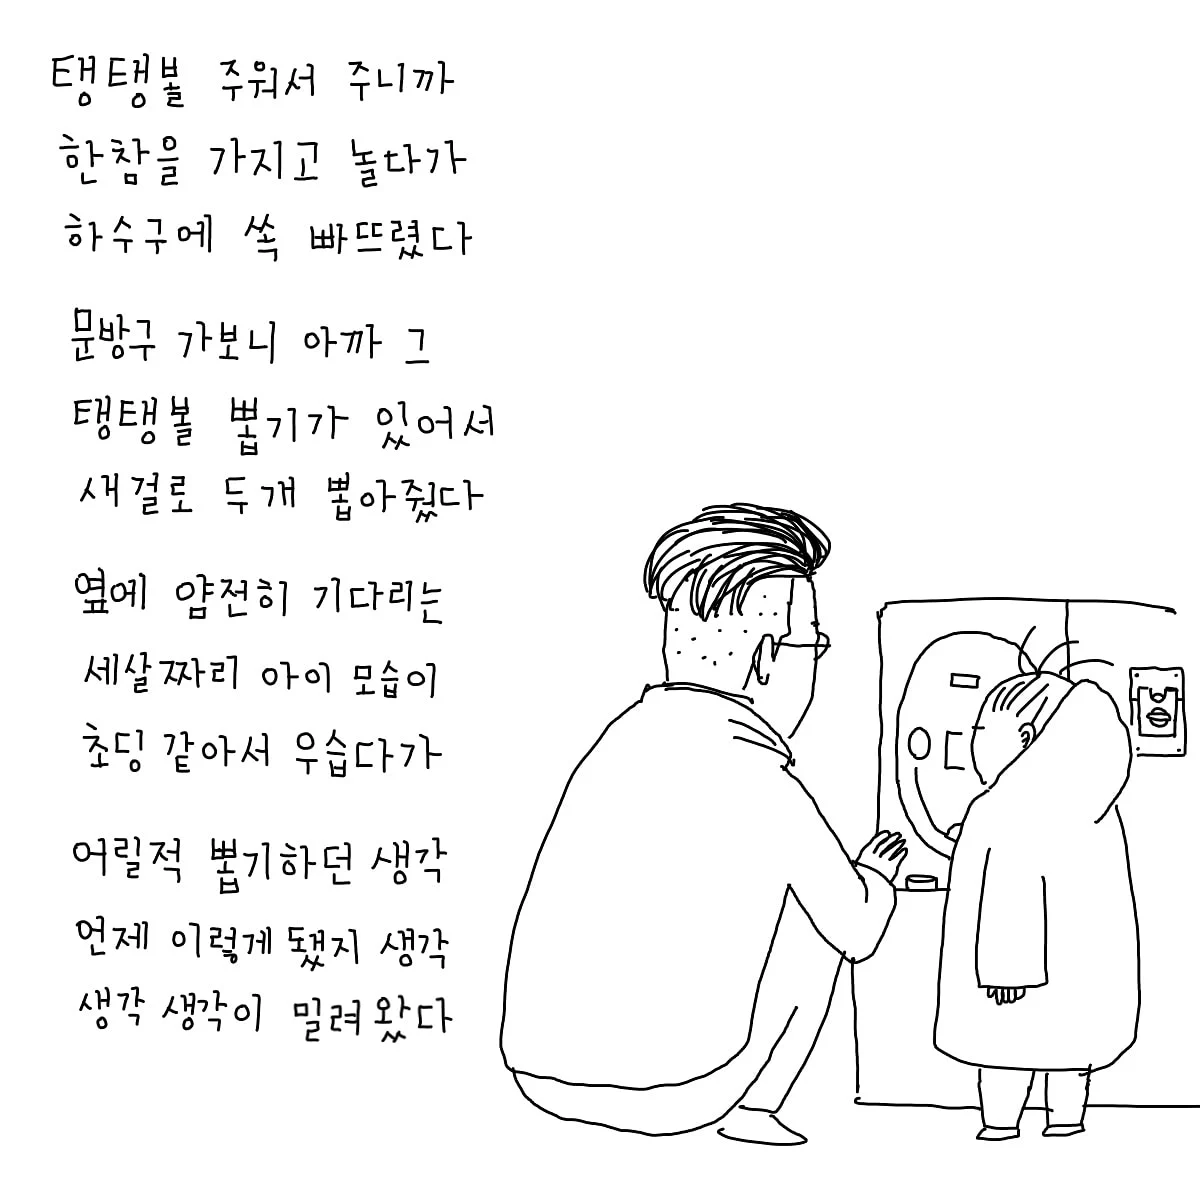 탱탱볼 주워서 주니까
한참을 가지고 놀다가
하수구에 쏙 빠뜨렸다
문방구 가보니 아까 그
탱탱볼 뽑기가 있어서
새걸로 두개 뽑아줬다
옆에 얌전히 기다리는
세살짜리 아이 모습이
초딩 같아서 우습다가
어릴적 뽑기하던 생각
언제 이렇게 됐지 생각
생각 생각이 밀려왔다